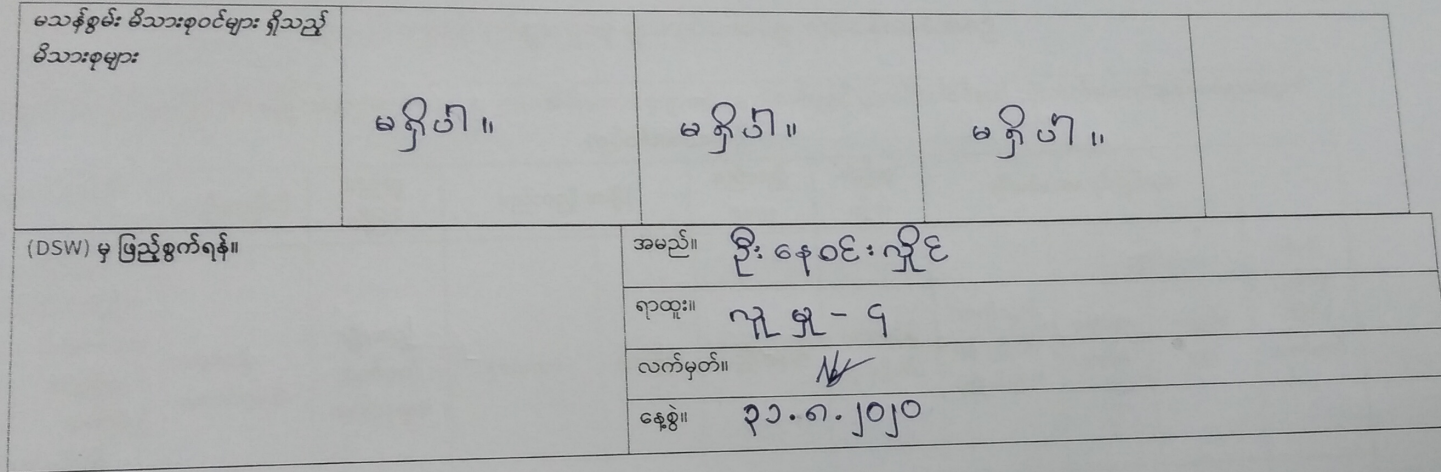 မသန်စွမ်း မိသားစုဝင်များ ရှိသည့်
မိသားစုများ
မရှိပါ။ မရှိပါ။ မရှိပါ။
(DSW) မှ ဖြည့်စွက်ရန်။
အမည်။ ဦးနေဝင်းလှိုင်
ရာထူး။ လူမှု - ၄
လက်မှတ်။
နေ့စွဲ။ ၃၁.၈.၂၀၂၀